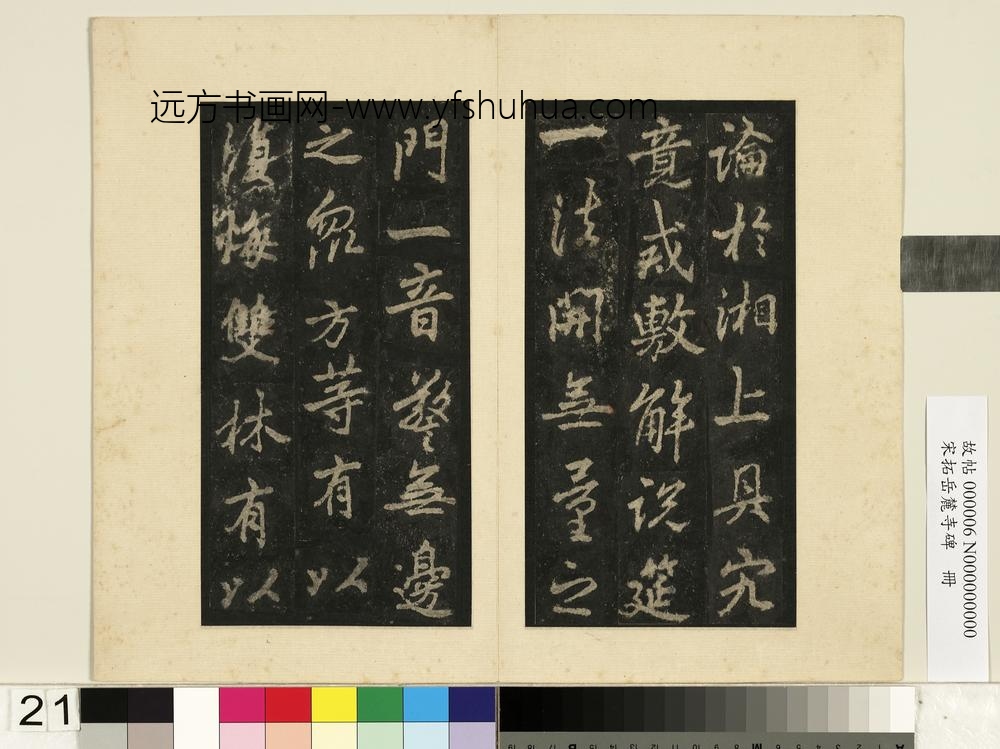 远方书画网-www.yfshuhua.com
論於湘上具究
竟戒敷解说筵
一法開無量之
門一音警無邊
之眾方等有以
復悔雙林有以
故帖 000006 N000000000
宋拓岳麓寺碑 冊
21